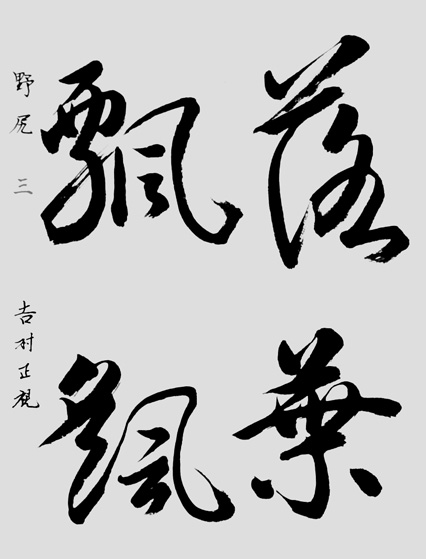 落葉
飄颻
野尻 三
吉村正